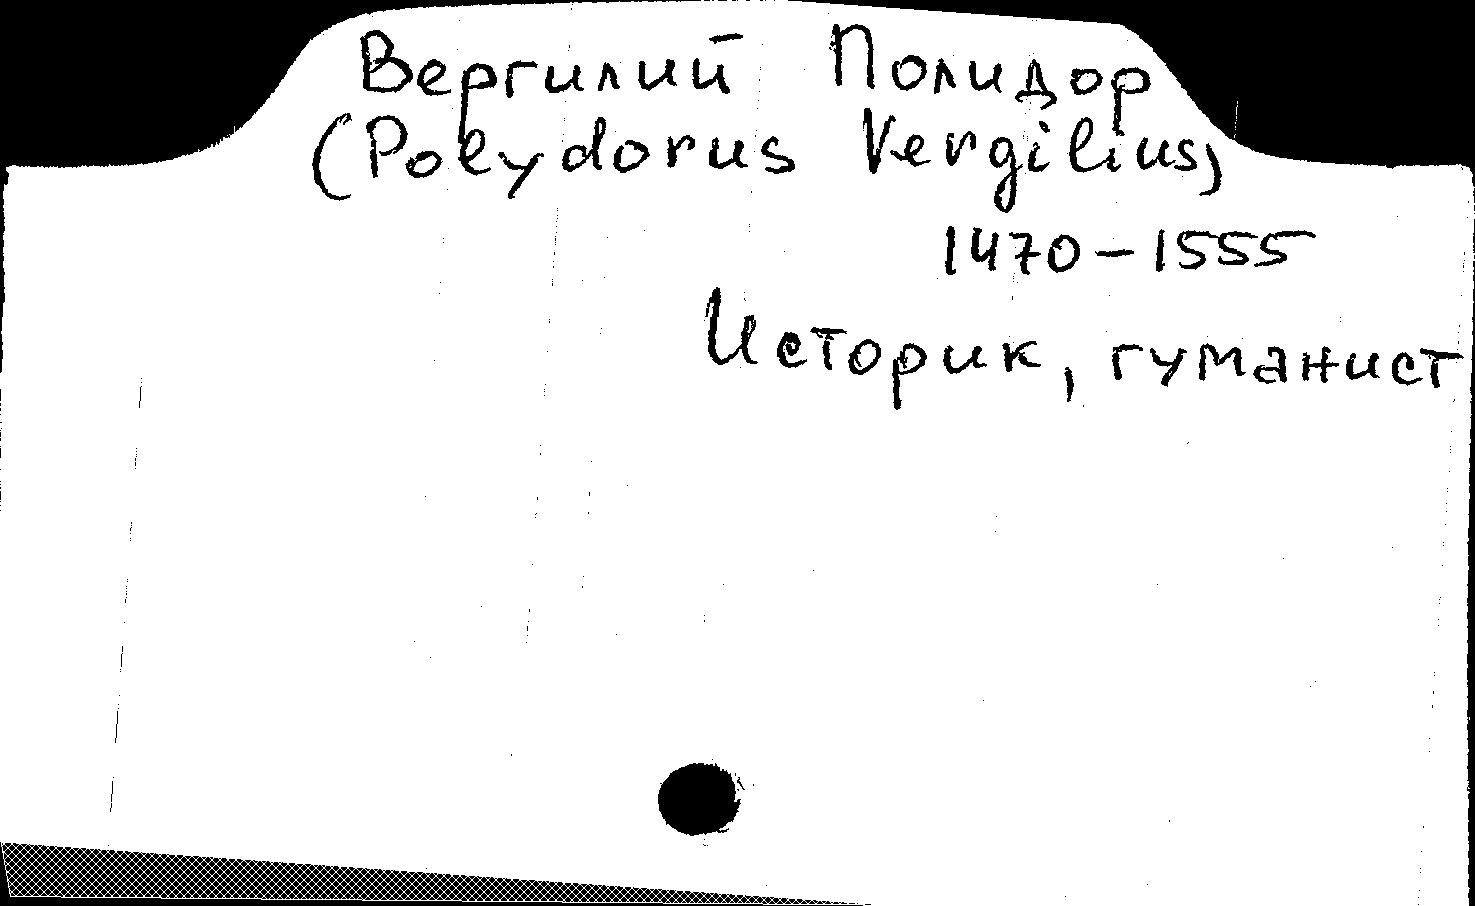 Вергилий Полидор
(Polydorus Vergilius)
1470-1555
Историк, гуманист